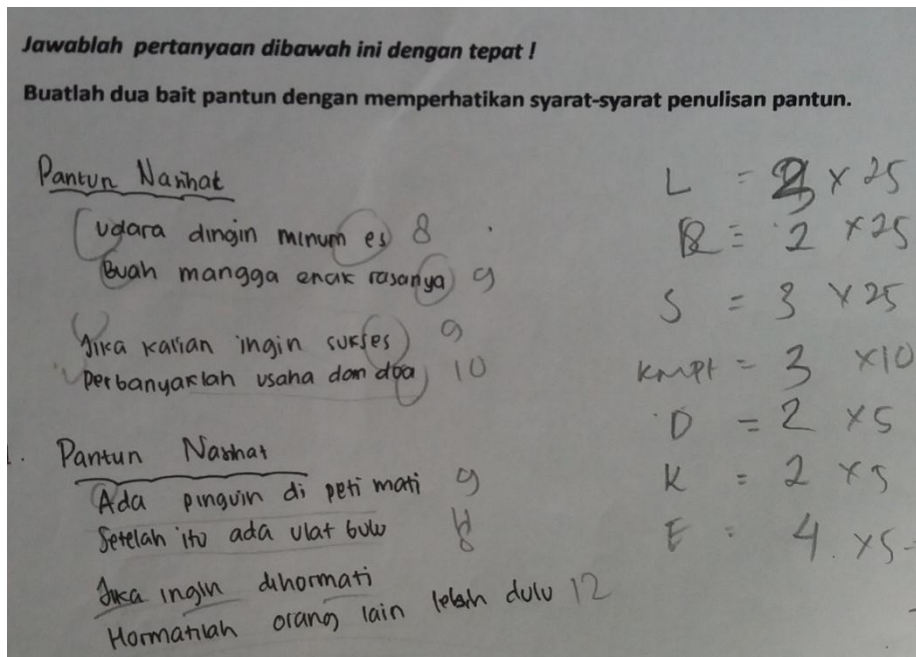 Jawablah pertanyaan dibawah ini dengan tepat !
Buatlah dua bait pantun dengan memperhatikan syarat-syarat penulisan pantun.
Pantun Nasihat
udara dingin minum es 8
Buah mangga enak rasanya 9
Jika kalian ingin sukses 9
Perbanyaklah usaha dan doa 10
Pantun Nasihat
Ada pinguin di peti mati 9
Setelah itu ada ulat bulu
Jika ingin dihormati
Hormatilah orang lain lebih dulu 12
L = × 25
R = 2 × 25
S = 3 × 25
kmpt = 3 × 10
D = 2 × 5
K = 2 × 5
E = 4 × 5